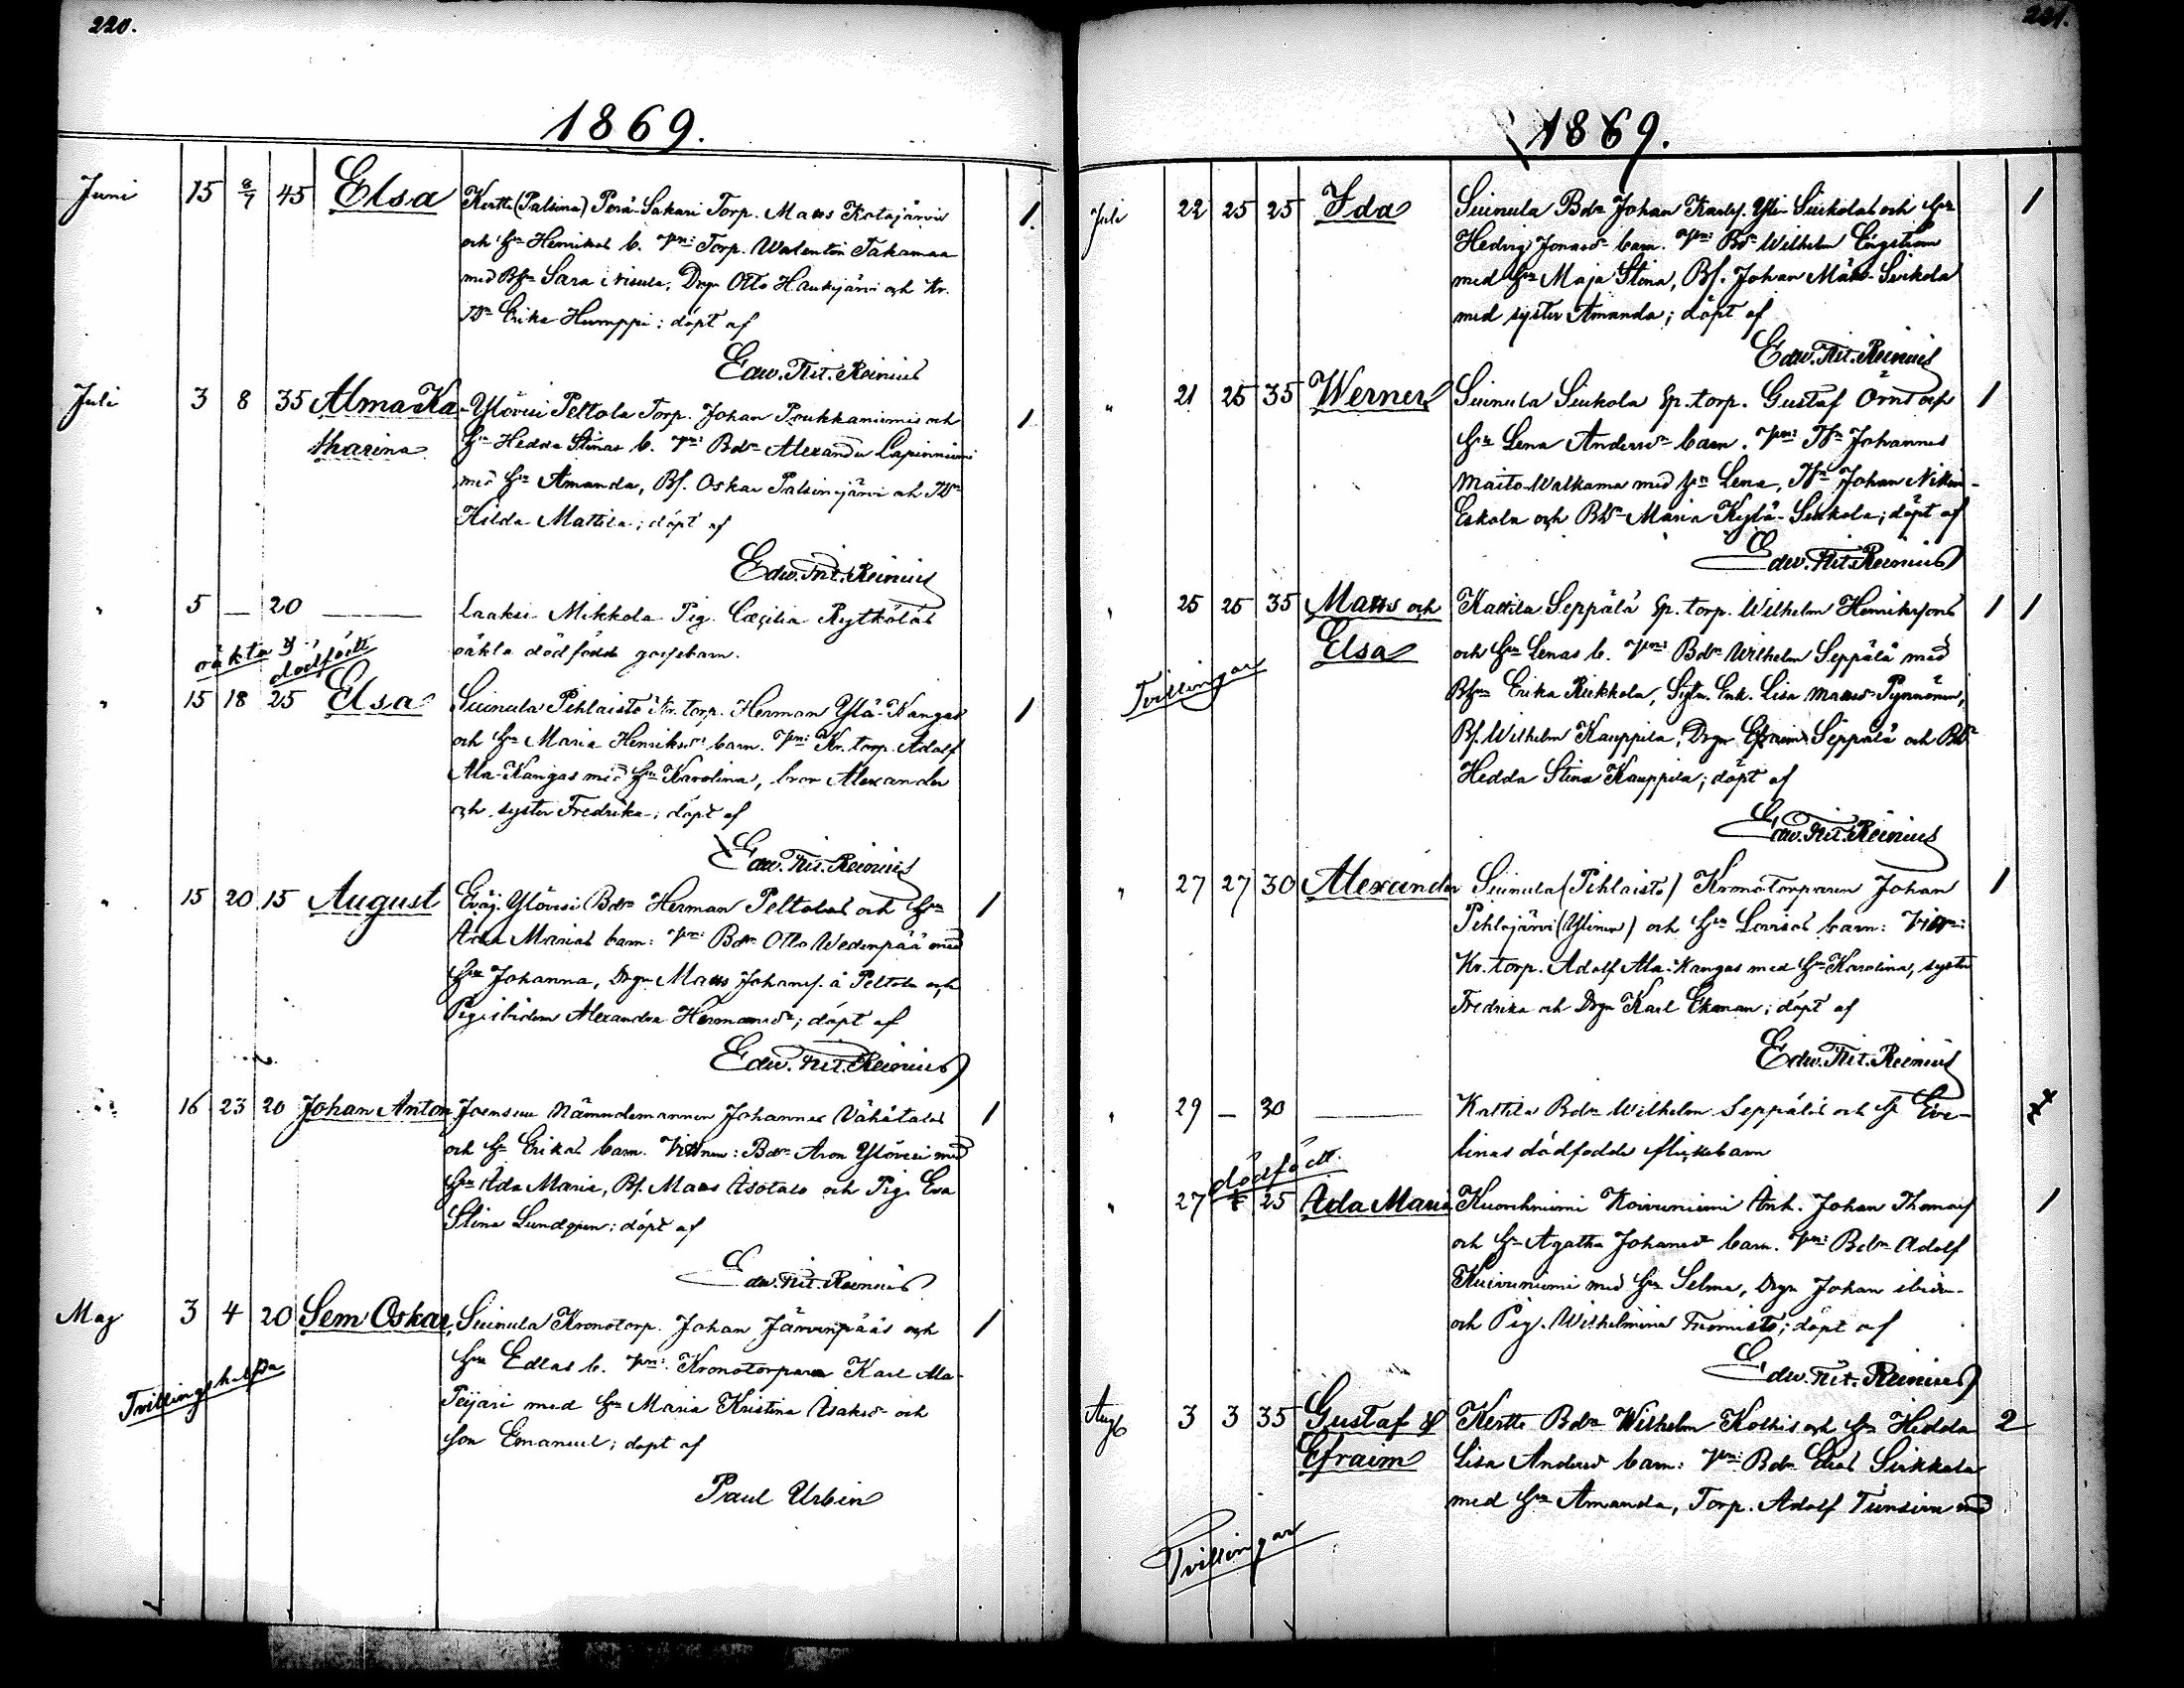 220.
1869.
Juni 15 8/7 45 Elsa Kertte (Palsina) Perä-Sakari Torp. Matts Katajärvis
och Hu Henrikas b. Vn: Torp. Walentin Takamaa
med Bhu Sara Nisula, Drgn Otto Haukijärvi och Kr.
Tdr Erika Humppi; döpt af
Edw. Tit. Reinius
Juli 3 8 35 Alma Ka- Ylövesi Peltola Torp. Johan Poukkaniemis och
tharina Hu Hedda Stinas b. Vn: Bdn Alexander Lapinniemi
med Hu Amanda, Bs. Oskar Palsinajärvi och TDr
Hilda Mattila; döpt af
Edw. Tit. Reinius
" 5 — 20 — Laaksi Mikkola Pig. Cæcilia Rytkölás
oäkta dödfödde gossebarn.
oäkta g.;
dödfödt
" 15 18 25 Elsa Suinula Pihlaisto Kr. torp. Herman Ylä-Kangas
och Hu Maria Henriksdrs barn. Vn: Kr. torp. Adolf
Ala-Kangas med Hu Karolina, bror Alexander
och syster Fredrika; döpt af
Edw. Tit. Reinius
" 15 20 15 August Eväj. Ylövesi Bdn Herman Peltolas och Hu
Ada Marias barn: Vn: Bdn Otto Wedenpää med
Hu Johanna, Drgn Matts Johans. å Peltola och
Pig. ibidem Alexandra Hermansdr; döpt af
Edw. Tit. Reinius
" 16 23 20 Johan Anton Joensuu Nämndemannen Johannes Vähätalos
och Hu Erikas barn. Vittnen: Bdn Aron Ylövesi med
Hu Ada Maria, Bs. Matts Isotalo och Pig. Eva
Stina Lundgren; döpt af
Edw. Tit. Reinius
Maj 3 4 20 Sem Oskar, Suinula Kronotorp. Johan Järvenpääs och
Hu Edlas b. Vn: Kronotorparen Karl Ala-
Peijari med Hu Maria Kristina Isaksdr och
son Emanuel; döpt af
Tvillingshalfva
Paul Urbin
221.
1869.
Juli 22 25 25 Ida Suinula Bdn Johan Karls. Yli-Siukolas och Hu
Hedvig Jonasdr barn. Vn: Bdn Wilhelm Engström
med Hu Maja Stina, Bs. Johan Mäki-Siukola
med syster Amanda; döpt af
Edw. Tit. Reinius
" 21 25 35 Werner Suinula Siukola Sp. torp. Gustaf Örns och
Hu Lena Andersdr barn. Vn: Tdn Johannes
Maito-Walkama med Hu Lena, Tdn Johan Nikin-
Eskola och Bdr Maria Kylä-Siukola; döpt af
Edw. Tit. Reinius
" 25 25 35 Matts och Kattila Seppälä Sp. torp. Wilhelm Henrikssons
Elsa och Hu Lenas b. Vn: Bdn Wilhelm Seppälä med
Tvillingar
Bhu Erika Riekkola, Sytn. Enk. Lisa Mattsdr Pynnönen,
Bs. Wilhelm Kauppila, Drgn Efraim Seppälä och Bdr
Hedda Stina Kauppila; döpt af
Edw. Tit. Reinius
" 27 27 30 Alexander Suinula (Pihlaisto) Kronotorparen Johan
Pihlajärvi (Ylinen) och Hu Lovisas barn: Vittn:
Kr. torp. Adolf Ala-Kangas med Hu Karolina, syster
Fredrika och Drgn Karl Ekman; döpt af
Edw. Tit. Reinius
" 29 — 30 — Kattila Bdn Wilhelm Seppäläs och H Eve-
linas dödfödda flickebarn
dödfödt.
" 27 25 Ada Maria Kuorehniemi Koivuniemi Inh. Johan Thomass
och Hu Agatha Johansdr barn. Vn: Bdn Adolf
Koivuniemi med Hu Selma, Drgn Johan ibidm
och Pig. Wilhelmina Tuomisto; döpt af
Edw. Tit. Reinius
Aug 3 3 35 Gustaf & Kertte Bdn Wilhelm Kolkis och Hu Hedda 2
Efraim Lisa Andersdr barn: Vn: Bdn Elias Siukkola
med Hu Amanda, Torp. Adolf Tunsinen med
Tvillingar